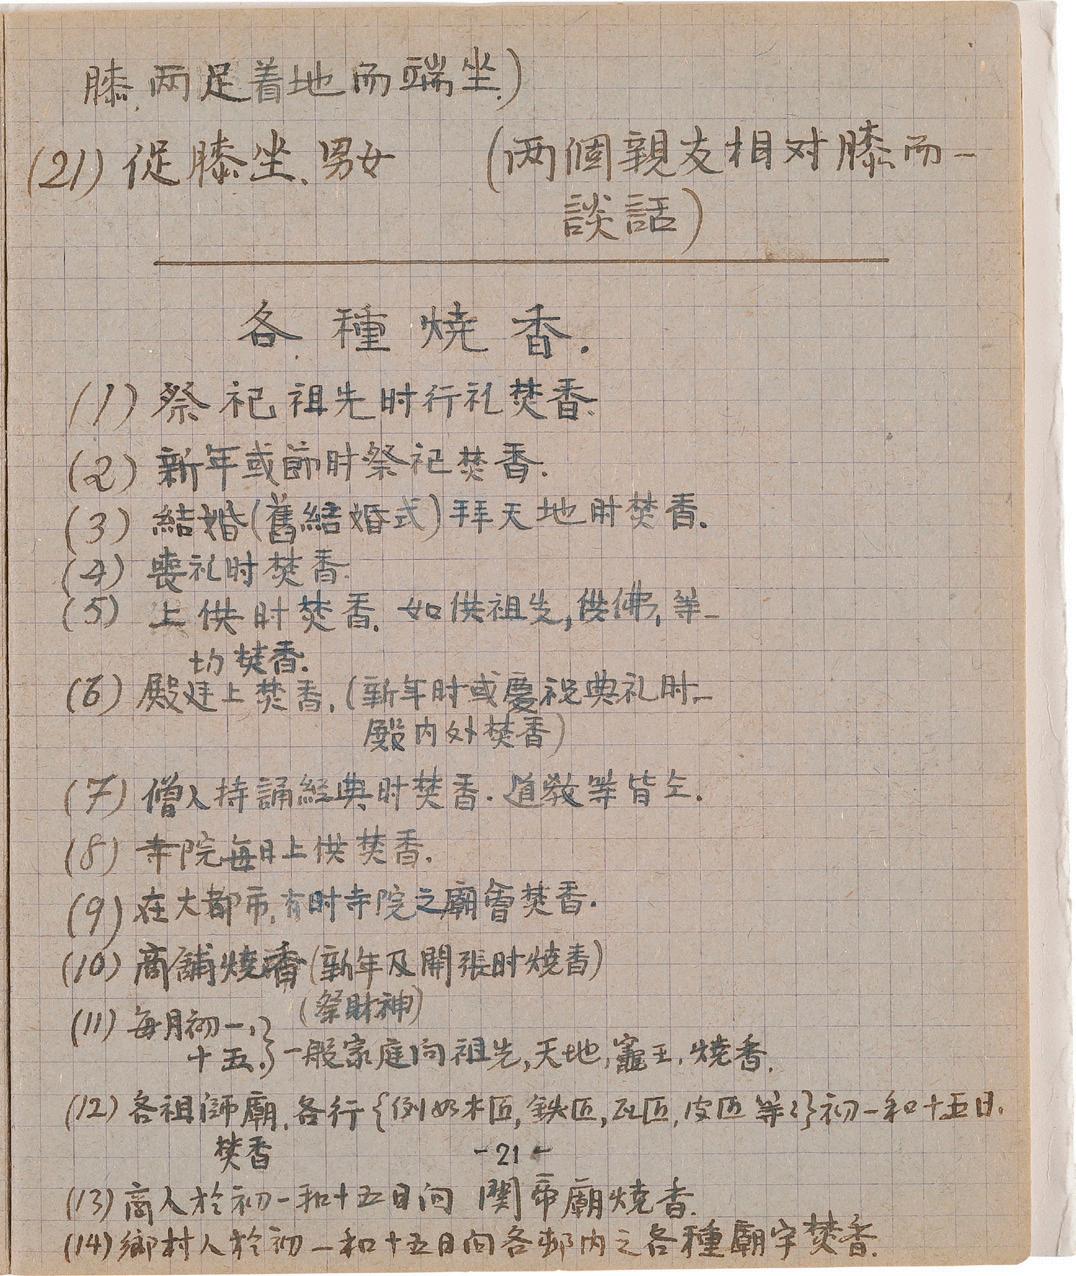 膝,两足着地而端坐.)
(21) 促膝坐.男女 (两個親友相对膝而–
談話)
各種燒香.
(1) 祭祀祖先时行礼焚香.
(2) 新年或節时祭祀焚香.
(3) 結婚(舊結婚式)拜天地时焚香.
(4) 喪礼时焚香.
(5) 上供时焚香. 如供祖先,供佛,等–
均焚香.
(6) 殿廷上焚香.(新年时或慶祝典礼时–
殿内外焚香)
(7) 僧人持誦經典时焚香.道教等皆仝.
(8) 寺院每日上供焚香.
(9) 在大都市,有时寺院之廟會焚香.
(10) 商舖燒香(新年及開張时燒香)
(祭財神)
(11) 每月初一,}
十五,} 一般家庭向祖先,天地,竈王,燒香.
(12) 各祖師廟,各行{例如木匠,鉄匠,瓦匠,皮匠等}初一和十五日.
焚香
-21-
(13) 商人於初一和十五日向 関帝廟燒香.
(14) 鄉村人於初一和十五日向各邨内之各種廟宇焚香.